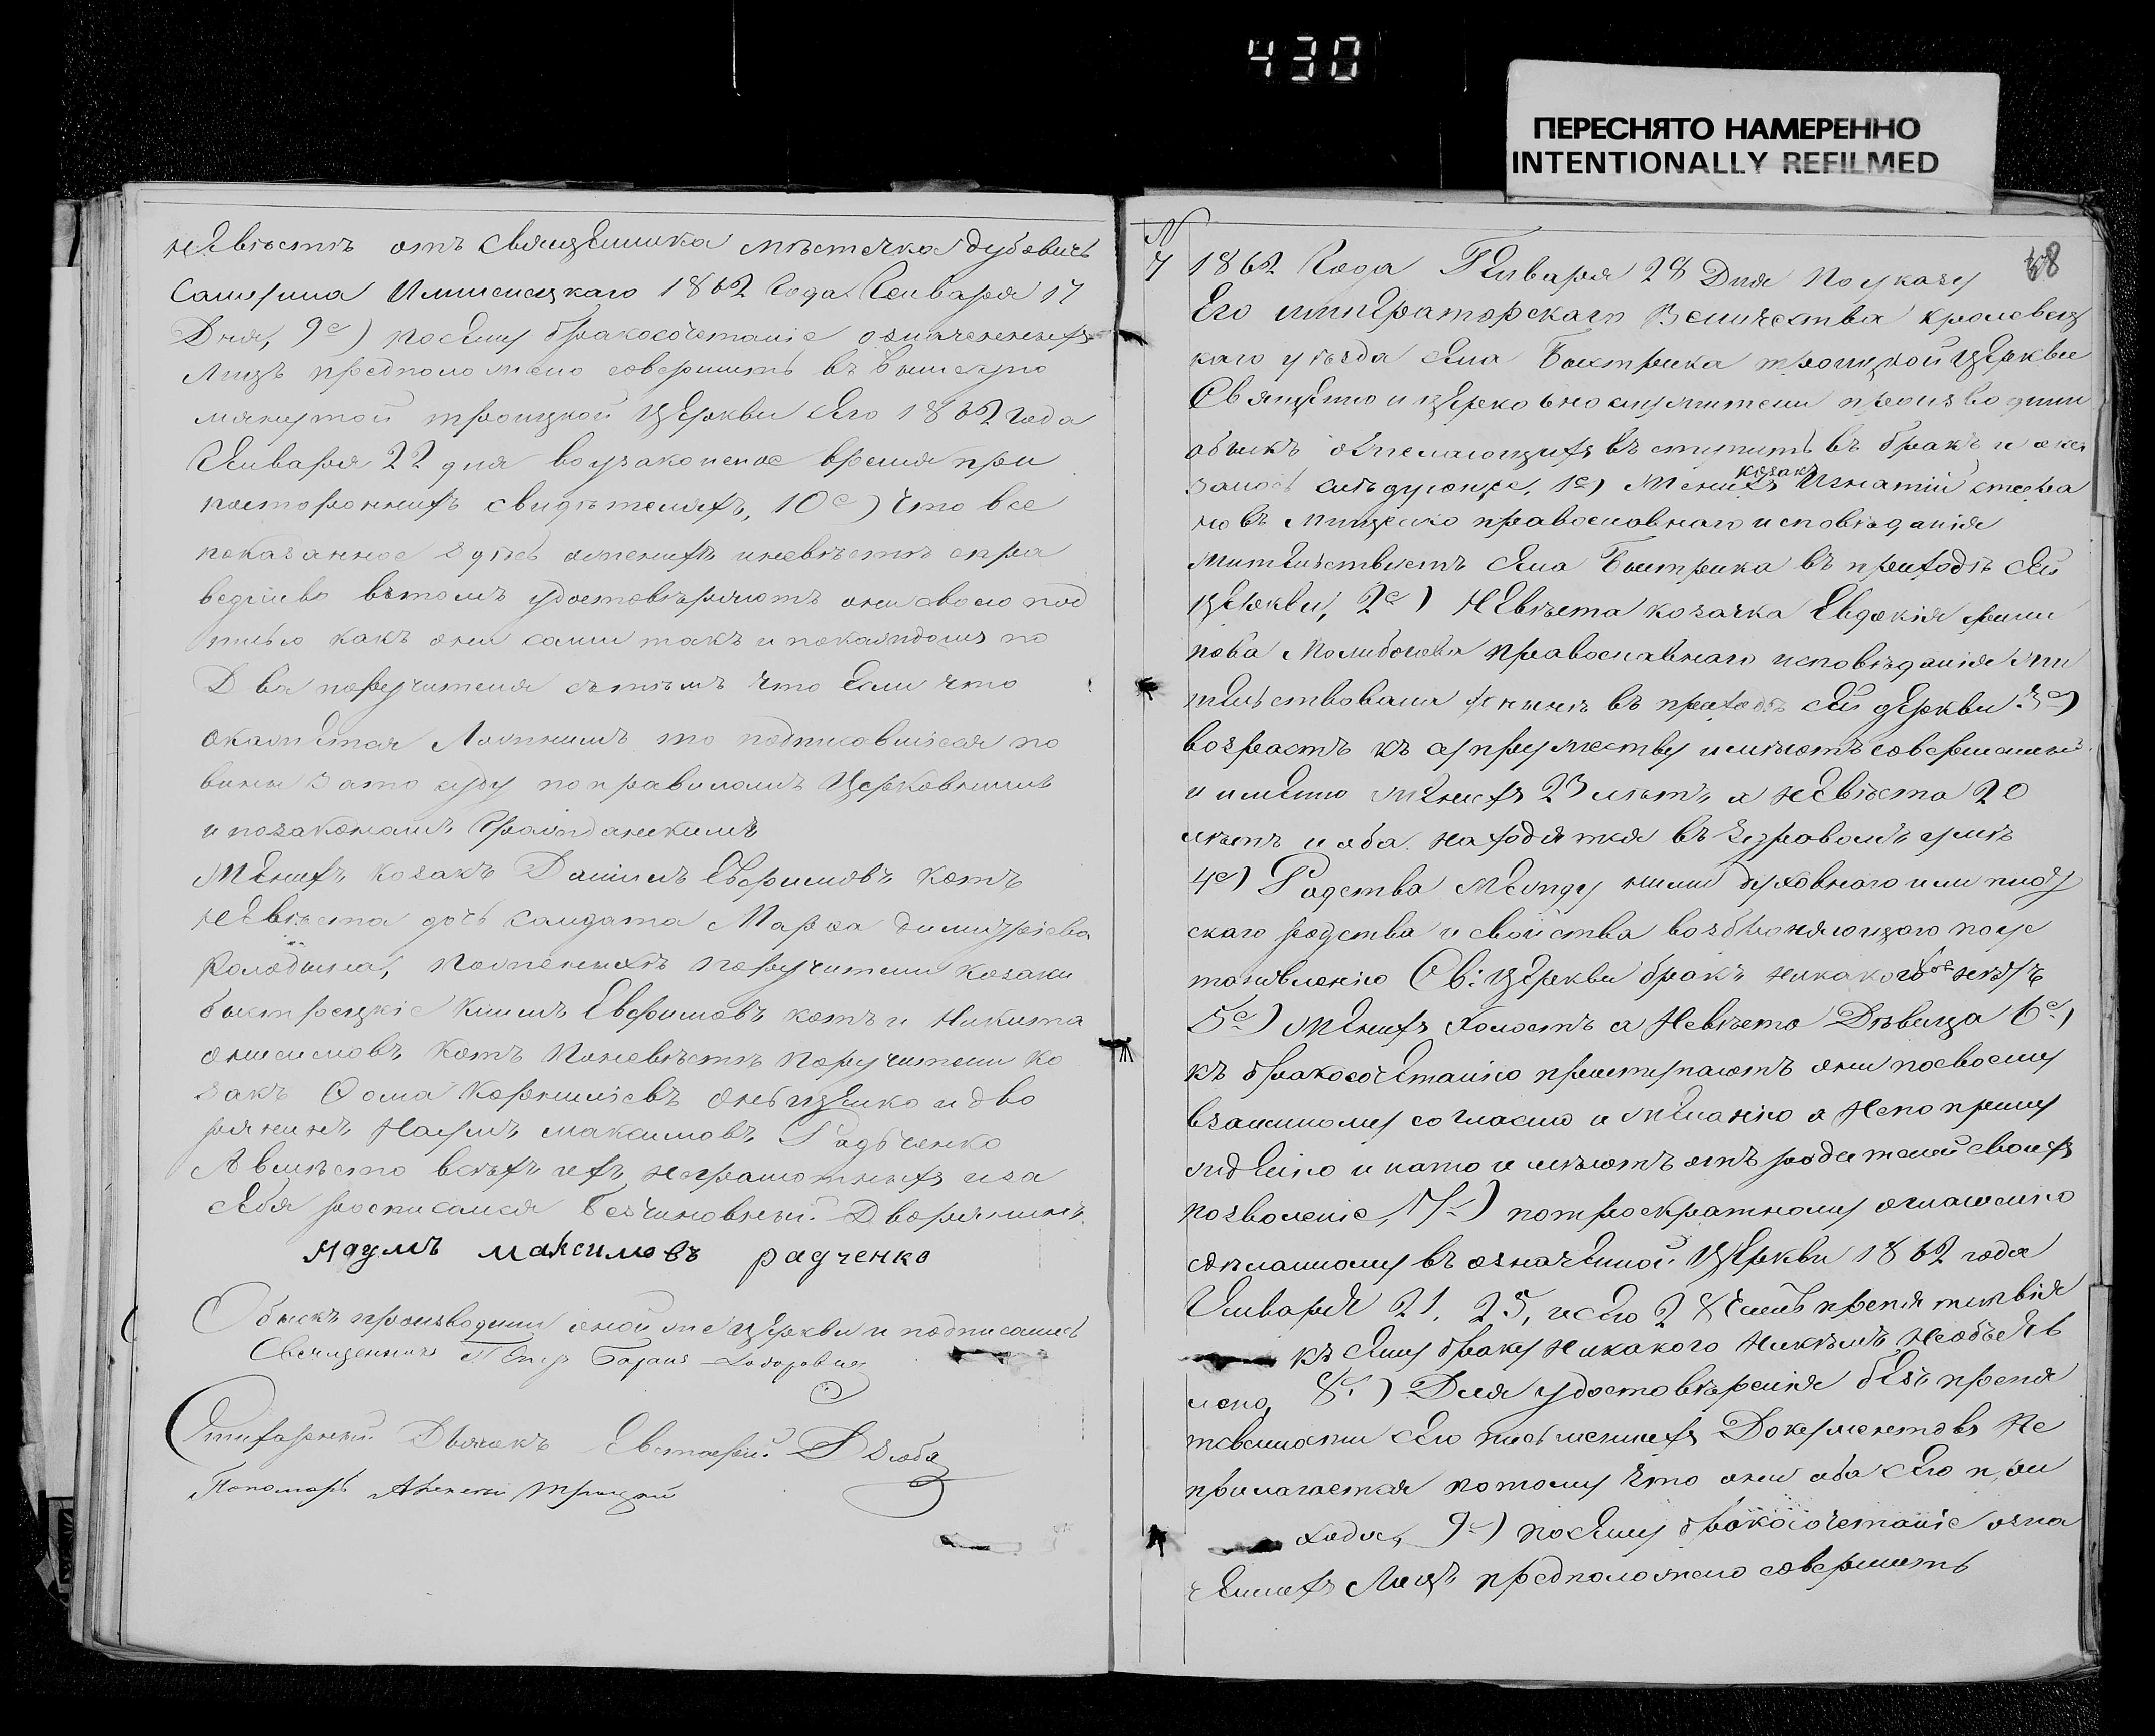 430
ПЕРЕСНЯТО НАМЕРЕННО
INTENTIONALLY REFILMED
невѣстѣ отъ священника мѣстечка дубовичъ
1862 Года Генваря 17
Дня, 9е) посему бракосочетаніе означенныхъ
Лицъ предположено совершить въ вышеупо
мянутой троицкой Церкви сего 1862 года
Января 22 дня воузаконенное время при
постороннихъ свидѣтеляхъ, 10е) Что все
показанное здѣсь оженихѣ иневѣстѣ спра
ведливо вътомъ удостовѣряютъ они своею под
писью какъ они сами такъ и покаждомъ по
Два поручителя сътѣмъ что Если что
окажется Ложнымъ то подписовшіеся по
винны зато суду поправиламъ Церковнымъ
и позаконамъ Гражданскимъ
Женихъ козакъ Даніилъ Евфимовъ Котъ
невѣста дочь салдата Марфа димитріева
Колодына, Поженихѣ Поручители козаки
быстрецкіе Климъ Евфимовъ котъ и Никита
Котъ Поневѣстѣ Поручители ко
закъ Фома Корниліевъ и дво
рянинъ Наумъ максимовъ Радченко
А вмѣсто всѣхъ ихъ неграмотныхъ иза
себя росписался Безчиновный Дворянинъ
Наумъ максимовъ радченко
Обыскъ производили оной же церкви и подписались
Священникъ Петръ
Стихарный Дьячокъ Евстафій Дзюба
Пономарь Алексѣй троицкій
N
68
7 1862 Года Генваря 28 Дня По указу
Его императорскаго Величества кролевец
каго уѣзда села Быстрика троицкой церкви
Священно и церковно служители производили
обыскъ ожелающихъ въступить въ бракъ и ока
залось слѣдующее, 1е) Женихъ козакъ Игнатій стефа
новъ православнаго исповѣданія
жительствуетъ села Быстрика въ приходѣ сей
церкви, 2е) Невѣста козачка Евдокія
православнаго исповѣданія жи
тельствовала донынѣ въ приходѣ сей церкви 3е)
возрастъ къ супружеству имѣютъ совершенный
и имянно женихъ 23 лѣтъ а невѣста 20
лѣтъ и оба находятся въ здравомъ умѣ
4е) Родства Между ними духовнаго или плот
скаго родства и свойства возбраняющаго поус
тановленію Св: церкви бракъ никакого нѣтъ
5е) Женихъ Холостъ а Невѣста Дѣвица 6е)
къ бракосочетанію приступаютъ они посвоему
взаимному согласію и желанію а Непопринуж
денію и нато имѣютъ отъ родителей своихъ
позволеніе, 7е) потроекратному оглашенію
сдѣланному въ означенной Церкви 1862 года
Января 21, 25, исего 28 чиселъ препятствія
къ сему браку никакого никѣмъ необъяв
лено, 8е) Для удостовѣренія безъ препя
тсвенности сего письменныхъ Документовъ Не
прилагается потому что они оба сего при
хода, 9е) посему бракосочетаніе озна
ченныхъ Лицъ предположено совершить